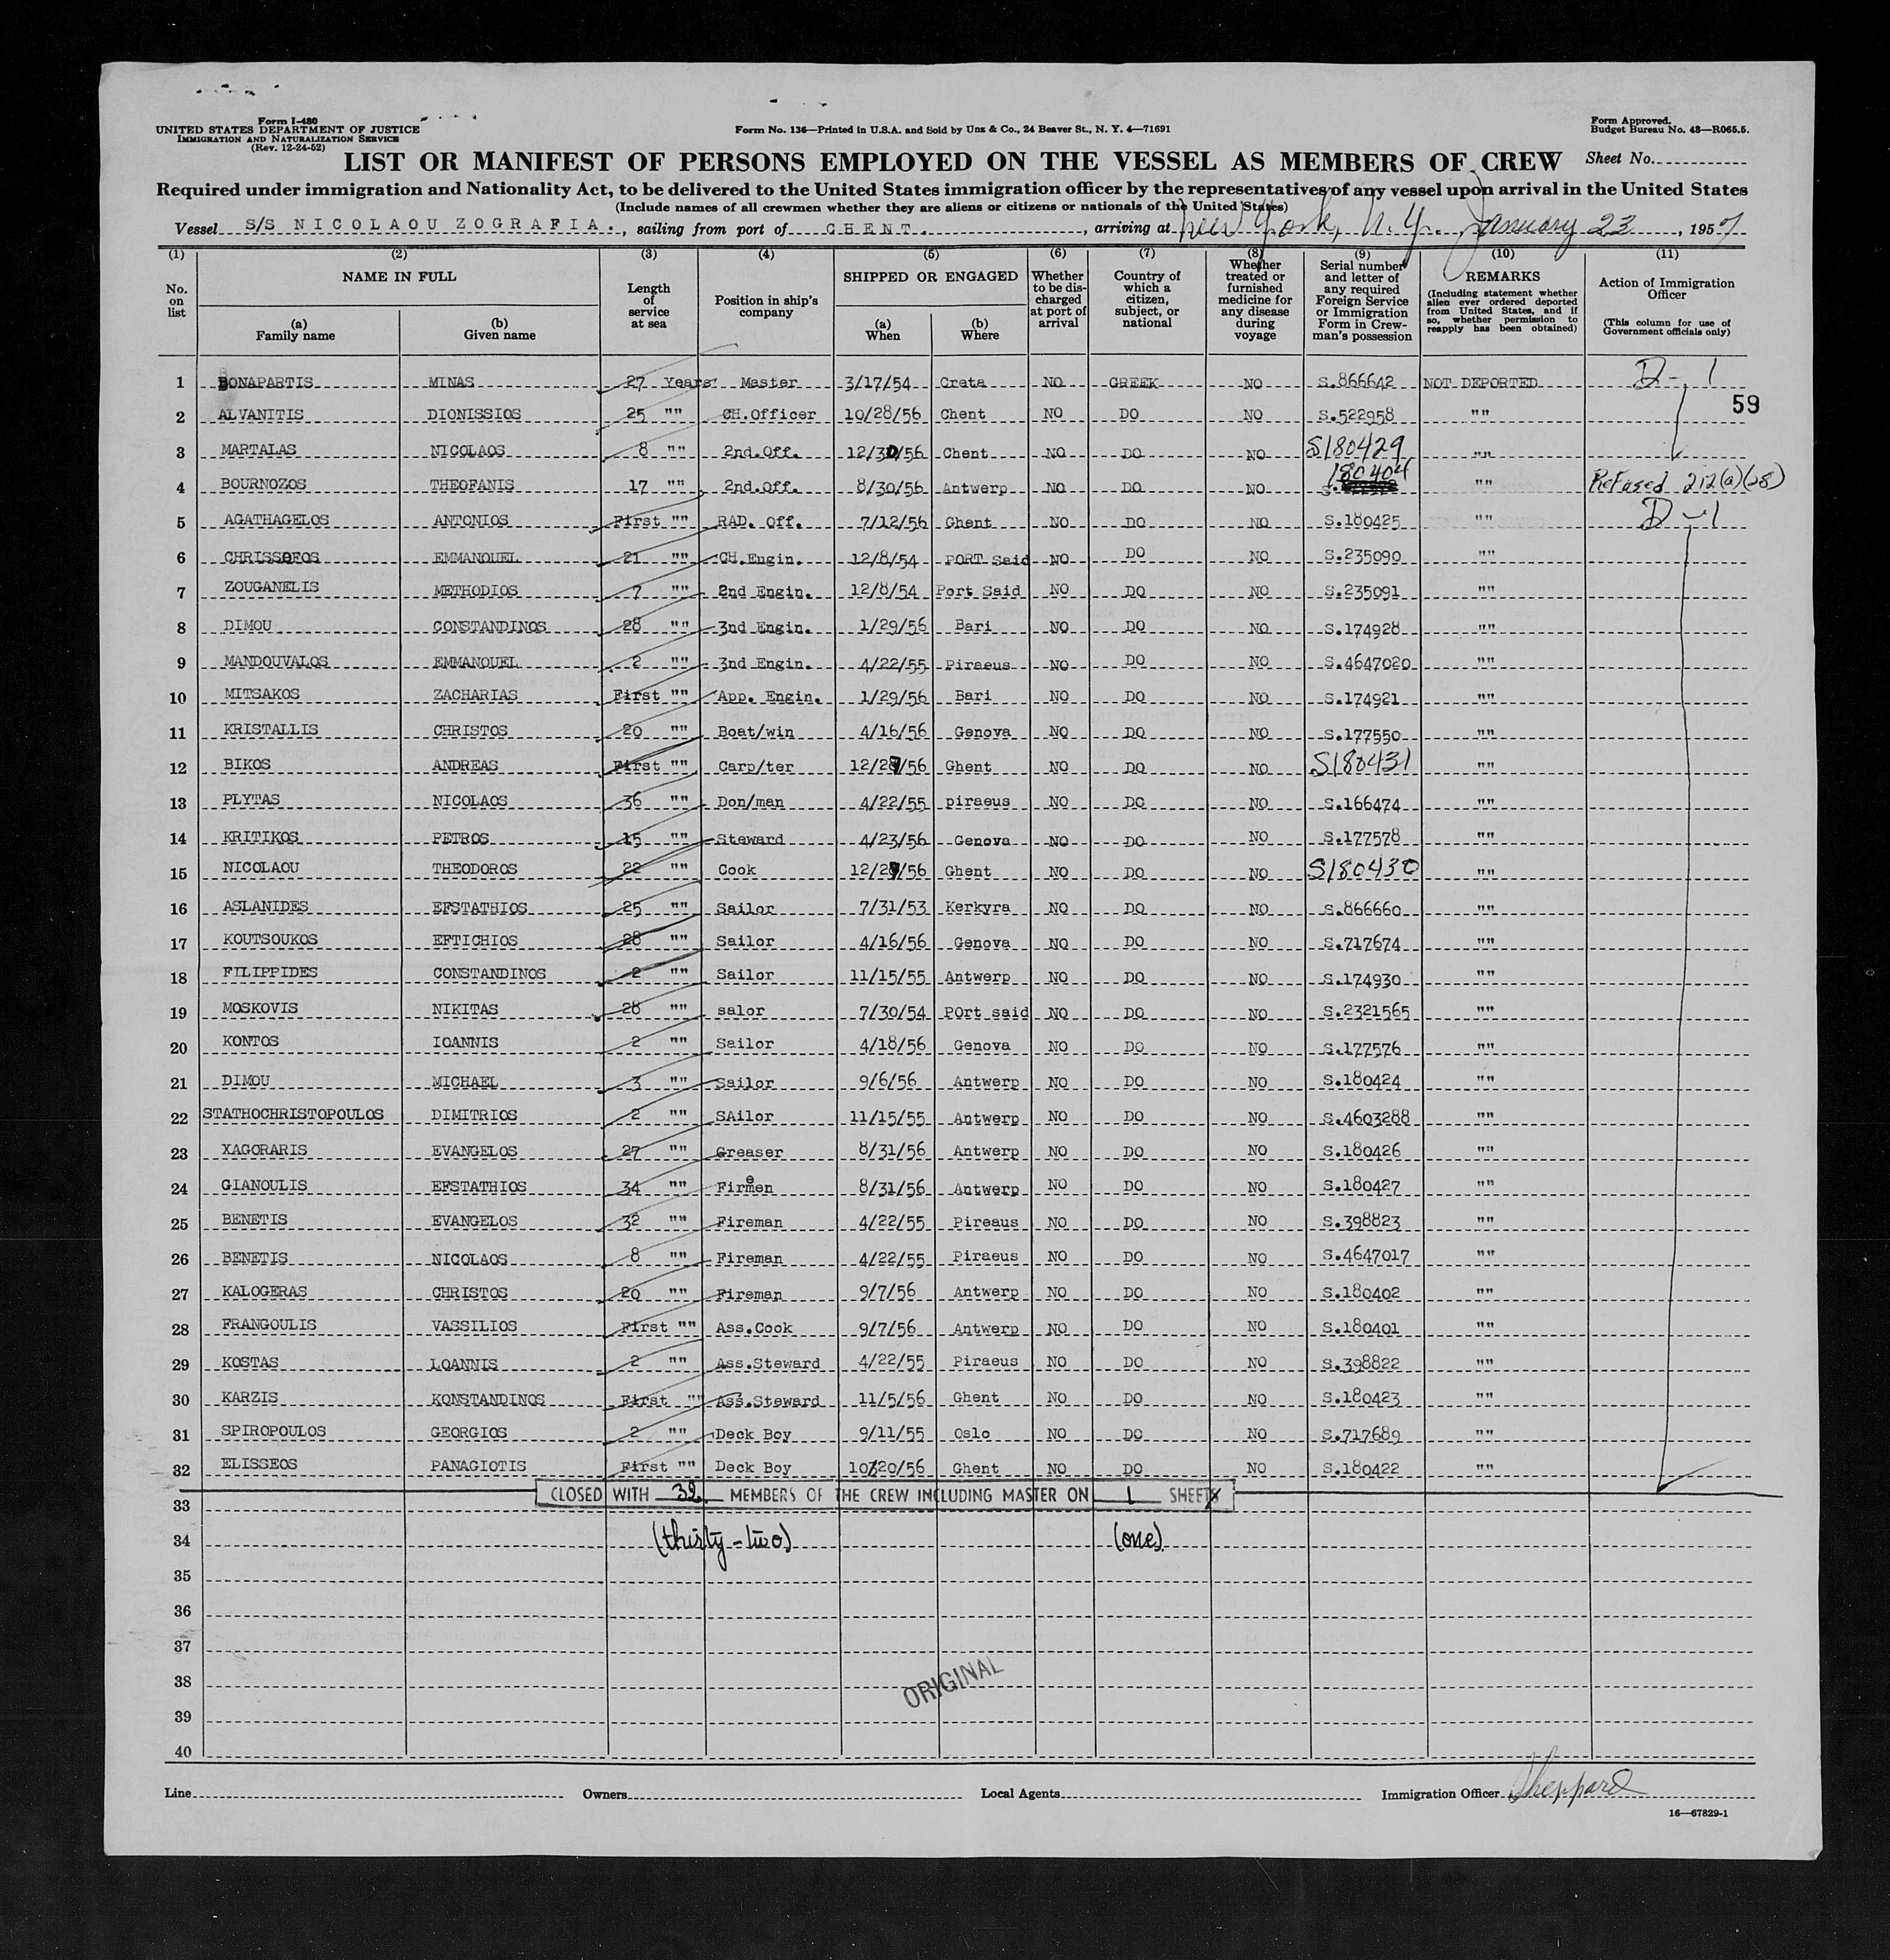 Form I-480
UNITED STATES DEPARTMENT OF JUSTICE
IMMIGRATION AND NATURALIZATION SERVICE
(Rev. 12-24-52)
Form No. 136—Printed in U.S.A. and Sold by Unz & Co., 24 Beaver St., N. Y. 4—71691
Form Approved.
Budget Bureau No. 43—R065.5.
LIST OR MANIFEST OF PERSONS EMPLOYED ON THE VESSEL AS MEMBERS OF CREW
Sheet No.
Required under immigration and Nationality Act, to be delivered to the United States immigration officer by the representatives of any vessel upon arrival in the United States
(Include names of all crewmen whether they are aliens or citizens or nationals of the United States)
Vessel S/S NICOLAOU ZOGRAFIA., sailing from port of CHENT., arriving at New York, N.Y. January 23, 1957
(1) (2) (3) (4) (5) (6) (7) (8) (9) (10) (11)
No. on list
NAME IN FULL
(a) Family name
(b) Given name
Length of service at sea
Position in ship's company
SHIPPED OR ENGAGED
(a) When
(b) Where
Whether to be discharged at port of arrival
Country of which a citizen, subject, or national
Whether treated or furnished medicine for any disease during voyage
Serial number and letter of any required Foreign Service or Immigration Form in Crewman's possession
REMARKS
(Including statement whether alien ever ordered deported from United States, and if so, whether permission to reapply has been obtained)
Action of Immigration Officer
(This column for use of Government officials only)
1 BONAPARTIS MINAS 27 Years Master 3/17/54 Creta NO GREEK NO S.866642 NOT DEPORTED D-1
59
2 ALVANITIS DIONISSIOS 25 "" CH.Officer 10/28/56 Chent NO DO NO S.522958 ""
3 MARTALAS NICOLAOS 8 "" 2nd.Off. 12/30/56 Chent NO DO NO S180429 ""
4 BOURNOZOS THEOFANIS 17 "" 2nd.Off. 8/30/56 Antwerp NO DO NO S. 180404 "" Refused 212(a)(28)
5 AGATHAGELOS ANTONIOS First "" RAD. Off. 7/12/56 Ghent NO DO NO S.180425 "" D-1
6 CHRISSOFOS EMMANOUEL 21 "" CH.Engin. 12/8/54 PORT Said NO DO NO S.235090 ""
7 ZOUGANELIS METHODIOS 7 "" 2nd Engin. 12/8/54 Port Said NO DO NO S.235091 ""
8 DIMOU CONSTANDINOS 28 "" 3nd Engin. 1/29/56 Bari NO DO NO S.174928 ""
9 MANDOUVALOS EMMANOUEL 2 "" 3nd Engin. 4/22/55 Piraeus NO DO NO S.4647020 ""
10 MITSAKOS ZACHARIAS First "" App. Engin. 1/29/56 Bari NO DO NO S.174921 ""
11 KRISTALLIS CHRISTOS 20 "" Boat/win 4/16/56 Genova NO DO NO S.177550 ""
12 BIKOS ANDREAS First "" Carp/ter 12/29/56 Ghent NO DO NO S180431 ""
13 PLYTAS NICOLAOS 36 "" Don/man 4/22/55 piraeus NO DO NO S.166474 ""
14 KRITIKOS PETROS 15 "" Steward 4/23/56 Genova NO DO NO S.177578 ""
15 NICOLAOU THEODOROS 22 "" Cook 12/29/56 Ghent NO DO NO S180430 ""
16 ASLANIDES EFSTATHIOS 25 "" Sailor 7/31/53 Kerkyra NO DO NO S.866660 ""
17 KOUTSOUKOS EFTICHIOS 28 "" Sailor 4/16/56 Genova NO DO NO S.717674 ""
18 FILIPPIDES CONSTANDINOS 2 "" Sailor 11/15/55 Antwerp NO DO NO S.174930 ""
19 MOSKOVIS NIKITAS 28 "" salor 7/30/54 POrt said NO DO NO S.2321565 ""
20 KONTOS IOANNIS 2 "" Sailor 4/18/56 Genova NO DO NO S.177576 ""
21 DIMOU MICHAEL 3 "" Sailor 9/6/56 Antwerp NO DO NO S.180424 ""
22 STATHOCHRISTOPOULOS DIMITRIOS 2 "" SAilor 11/15/55 Antwerp NO DO NO S.4603288 ""
23 XAGORARIS EVANGELOS 27 "" Greaser 8/31/56 Antwerp NO DO NO S.180426 ""
24 GIANOULIS EFSTATHIOS 34 "" Firemen 8/31/56 Antwerp NO DO NO S.180427 ""
25 BENETIS EVANGELOS 32 "" Fireman 4/22/55 Pireaus NO DO NO S.398823 ""
26 BENETIS NICOLAOS 8 "" Fireman 4/22/55 Piraeus NO DO NO S.4647017 ""
27 KALOGERAS CHRISTOS 20 "" Fireman 9/7/56 Antwerp NO DO NO S.180402 ""
28 FRANGOULIS VASSILIOS First "" Ass.Cook 9/7/56 Antwerp NO DO NO S.180401 ""
29 KOSTAS LOANNIS 2 "" Ass.Steward 4/22/55 Piraeus NO DO NO S.398822 ""
30 KARZIS KONSTANDINOS First "" Ass.Steward 11/5/56 Ghent NO DO NO S.180423 ""
31 SPIROPOULOS GEORGIOS 2 "" Deck Boy 9/11/55 Oslo NO DO NO S.717689 ""
32 ELISSEOS PANAGIOTIS First "" Deck Boy 10/20/56 Ghent NO DO NO S.180422 ""
CLOSED WITH 32 MEMBERS OF THE CREW INCLUDING MASTER ON 1 SHEET
33
34 (thirty-two) (one)
35
36
37
38 ORIGINAL
39
40
Line Owners Local Agents Immigration Officer Sheppard
16—67829-1